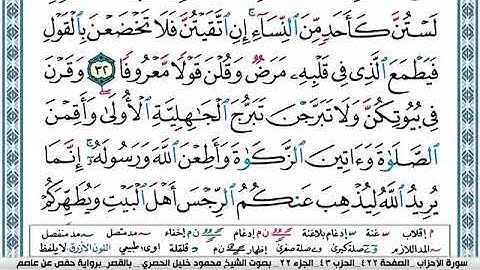 لَسْتُنَّ كَأَحَدٍ مِّنَ ٱلنِّسَآءِ ۚ إِنِ ٱتَّقَيْتُنَّ فَلَا تَخْضَعْنَ بِٱلْقَوْلِ
فَيَطْمَعَ ٱلَّذِى فِى قَلْبِهِۦ مَرَضٌ وَقُلْنَ قَوْلًا مَّعْرُوفًا ٣٢ وَقَرْنَ
فِى بُيُوتِكُنَّ وَلَا تَبَرَّجْنَ تَبَرُّجَ ٱلْجَـٰهِلِيَّةِ ٱلْأُولَىٰ ۖ وَأَقِمْنَ
ٱلصَّلَوٰةَ وَءَاتِينَ ٱلزَّكَوٰةَ وَأَطِعْنَ ٱللَّهَ وَرَسُولَهُۥٓ ۚ إِنَّمَا
يُرِيدُ ٱللَّهُ لِيُذْهِبَ عَنكُمُ ٱلرِّجْسَ أَهْلَ ٱلْبَيْتِ وَيُطَهِّرَكُمْ
م إقلاب غنة إدغام بلاغنة ن م إدغام ن م إخفاء مد متصل مد منفصل
المد اللازم صلة كبرى صلة صغرى إظهار ن م قلقلة اوى طبيعي اللون الأزرق لا يلفظ
سورة الأحزاب _ الصفحة ٤٢٢ _ الحزب ٤٣ _ الجزء ٢٢ _ بصوت الشيخ محمود خليل الحصري _ بالقصر_برواية حفص عن عاصم